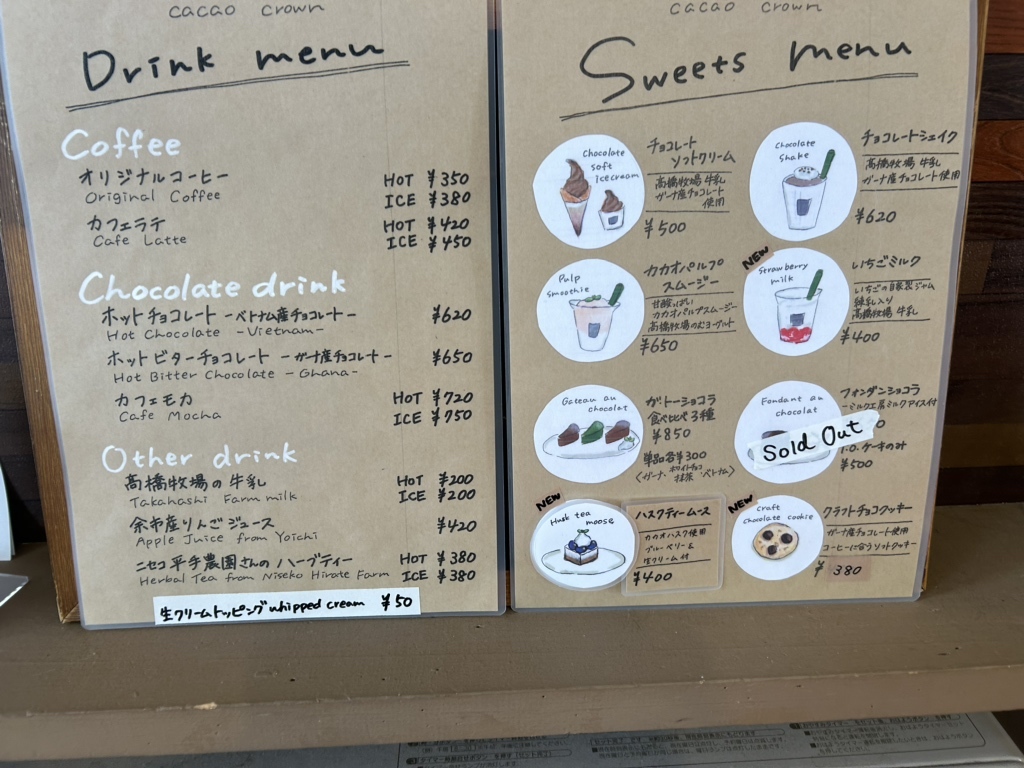 cacao crown
Drink menu
Coffee
オリジナルコーヒー HOT ¥350
Original Coffee ICE ¥380
カフェラテ HOT ¥420
Cafe Latte ICE ¥450
Chocolate drink
ホットチョコレート -ベトナム産チョコレート- ¥620
Hot Chocolate -Vietnam-
ホットビターチョコレート -ガーナ産チョコレート- ¥650
Hot Bitter Chocolate -Ghana-
カフェモカ HOT ¥720
Cafe Mocha ICE ¥750
Other drink
高橋牧場の牛乳 HOT ¥200
Takahashi Farm milk ICE ¥200
余市産りんごジュース ¥420
Apple Juice from Yoichi
ニセコ平手農園さんのハーブティー HOT ¥380
Herbal Tea from Niseko Hirate Farm ICE ¥380
生クリームトッピング whipped cream ¥50
cacao crown
Sweets menu
Chocolate
soft
icecream
チョコレート
ソフトクリーム
高橋牧場 牛乳
ガーナ産チョコレート
使用
¥500
Chocolate
shake
チョコレートシェイク
高橋牧場 牛乳
ガーナ産チョコレート使用
¥620
Pulp
smoothie
カカオパルプ
スムージー
甘酸っぱい
カカオパルプスムージー
高橋牧場のむヨーグルト
¥650
NEW
Strawberry
milk
いちごミルク
いちごの自家製ジャム
練乳入り
高橋牧場 牛乳
¥400
Gateau au
chocolat
ガトーショコラ
食べ比べ3種
¥850
単品各¥300
〈ガーナ・ホワイトチョコ抹茶・ベトナム〉
Fondant au
chocolat
フォンダンショコラ
-ミルク工房ミルクアイス付
Sold Out
T.O.ケーキのみ
¥500
NEW
Husk tea
moose
ハスクティームース
カカオハスク使用
ブルーベリー&
生クリーム付
¥400
NEW
Craft
chocolate cookie
クラフトチョコクッキー
ガーナ産チョコレート使用
コーヒーに合うソフトクッキー
¥380